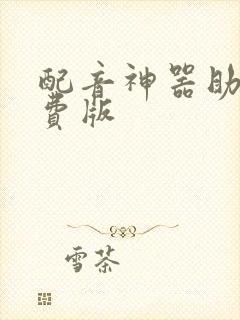 配音神器助
費版
雪茶